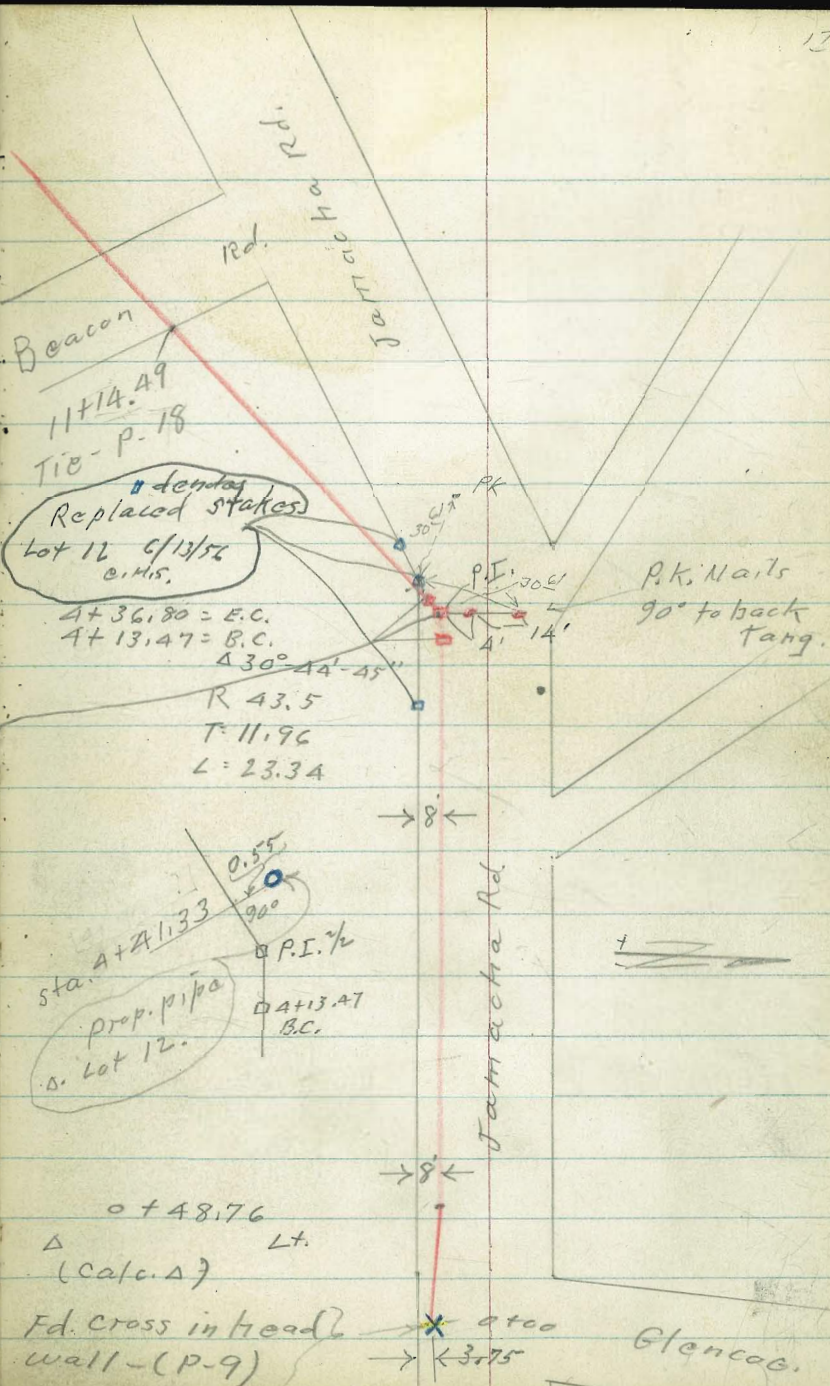 17
Jamacha Rd.
Rd.
Beacon
11+14.49
Tie - P-18
Replaced stakes
Lot 12 6/13/56
PK
P.I.
30
P.K. Nails
90° to back
Tang.
4'
14'
4+36.80 = E.C.
4+13.47 = B.C.
Δ 30°-44'-45"
R 43.5
T = 11.96
L = 23.34
8'
0.55
90°
sta. 4+41.33
P.I. 2/2
prop. pipe
Δ. Lot 12.
4+13.47
B.C.
Jamacha Rd.
8'
0+48.76
Δ Lt.
(Calc. Δ)
Fd. Cross in head
wall - (P-9)
0+00
3.75
Glencoe.